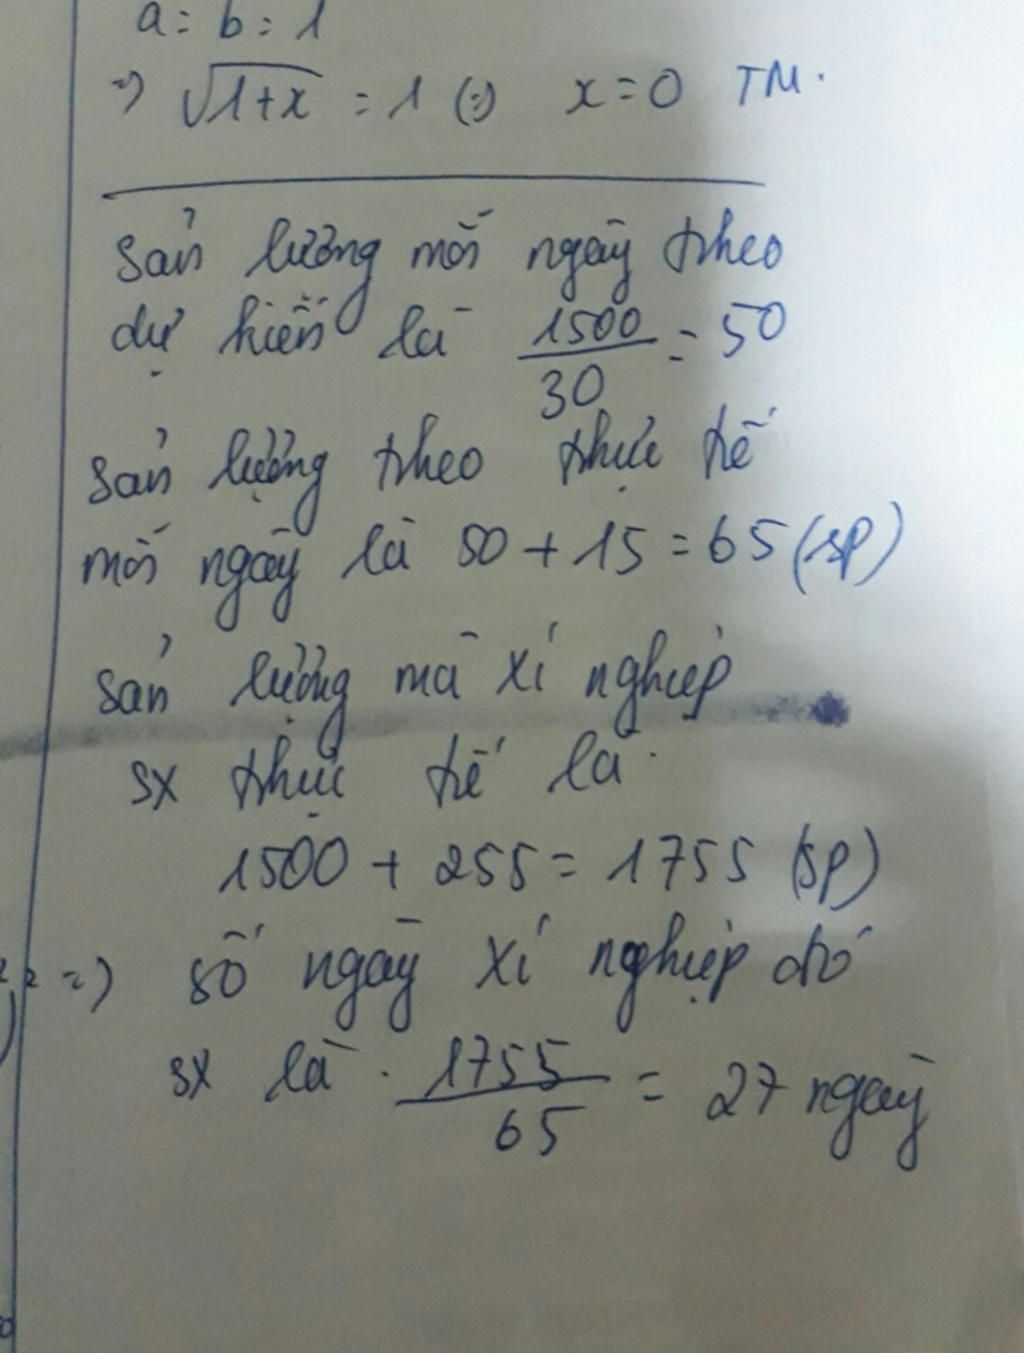 a = b = 1
=> √1+x = 1 (=) x = 0 TM.
Sản lượng mỗi ngày theo
dự kiến là 1500/30 = 50
Sản lượng theo thực tế
mỗi ngày là 50 + 15 = 65 (sp)
Sản lượng mà xí nghiệp
sx thực tế là.
1500 + 255 = 1755 (sp)
=) số ngày xí nghiệp đó
sx là. 1755/65 = 27 ngày